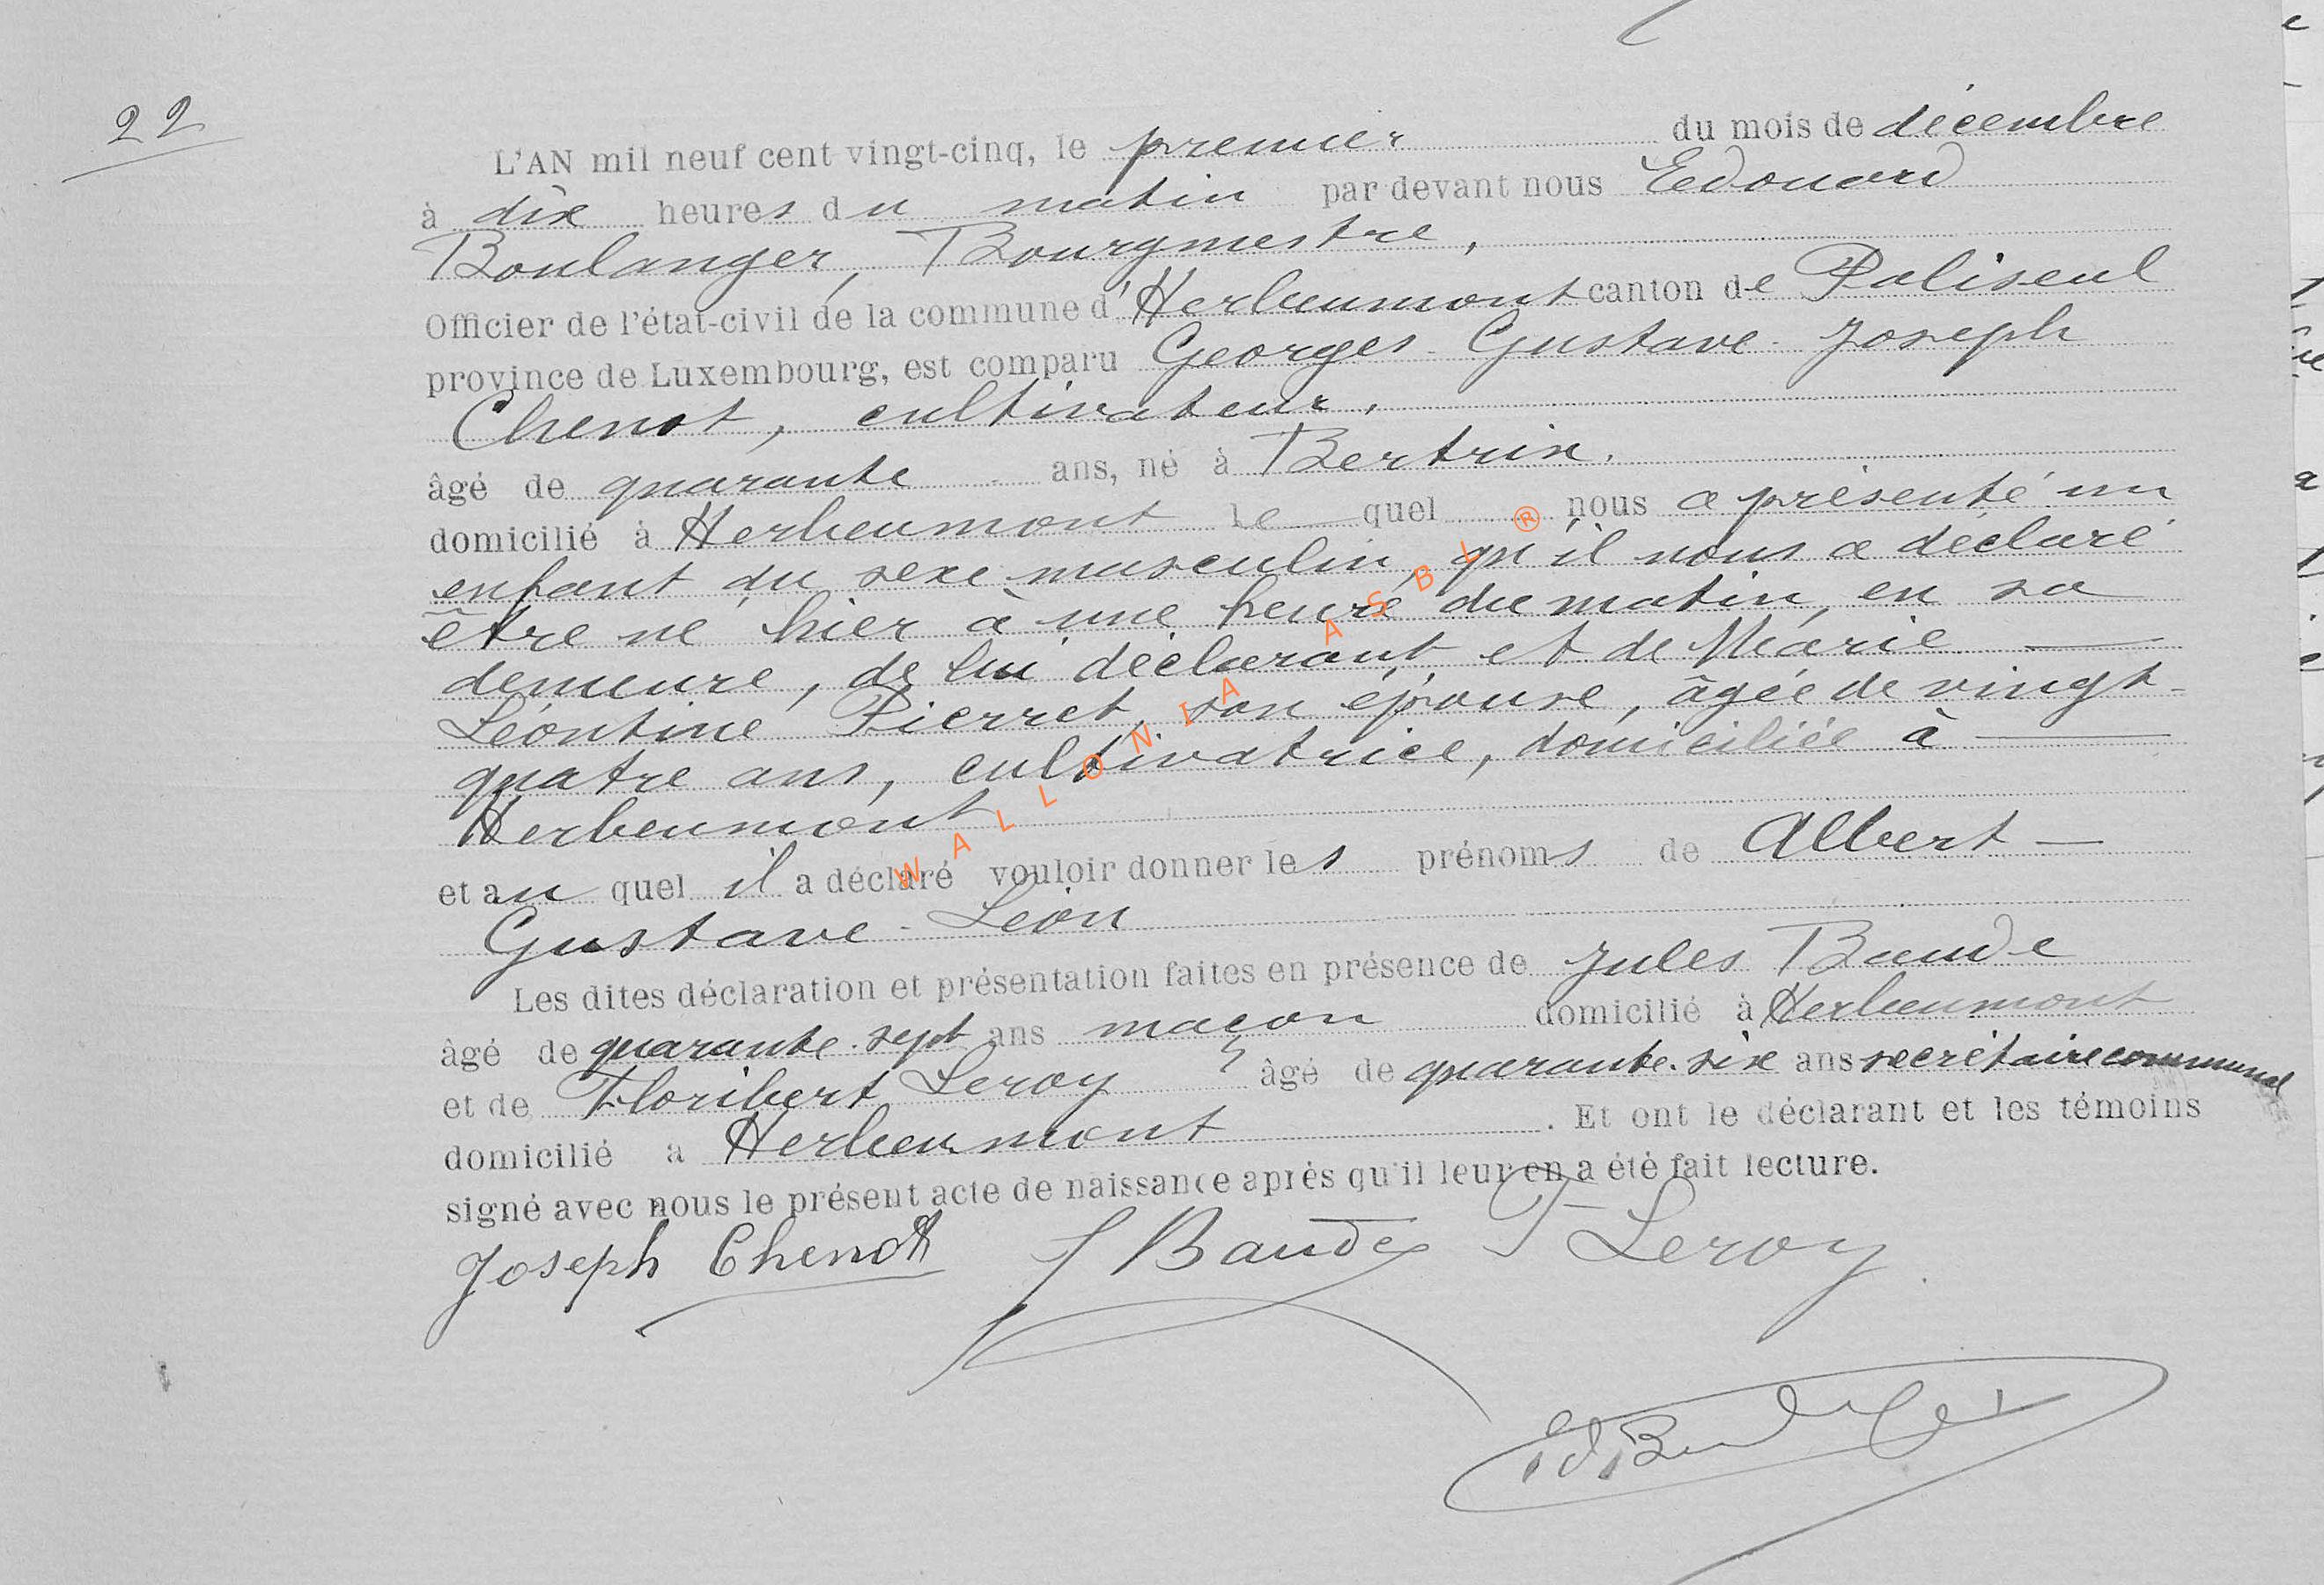 22
L'AN mil neuf cent vingt-cinq, le premier du mois de décembre
à dix heures du matin par devant nous Edouard
Boulanger, Bourgmestre,
Officier de l'état-civil de la commune d'Herbeumont canton de Paliseul
province de Luxembourg, est comparu Georges-Gustave-Joseph
Chenot, cultivateur,
âgé de quarante ans, né à Bertrix,
domicilié à Herbeumont le quel nous a présenté un
enfant du sexe masculin, qu'il nous a déclaré
être né hier à une heure du matin, en sa
demeure, de lui déclarant et de Marie
Léontine Pierret, son épouse, âgée de vingt-
quatre ans, cultivatrice, domiciliée à
Herbeumont
et au quel il a déclaré vouloir donner les prénoms de Albert
Gustave-Léon
Les dites déclaration et présentation faites en présence de Jules Baude
âgé de quarante-sept ans maçon domicilié à Herbeumont
et de Floribert Leroy âgé de quarante-six ans secrétaire communal
domicilié a Herbeumont. Et ont le déclarant et les témoins
signé avec nous le présent acte de naissance après qu'il leur en a été fait lecture.
Joseph Chenot J Baude F Leroy
Ed Boulanger
WALLONIA ASBL ®